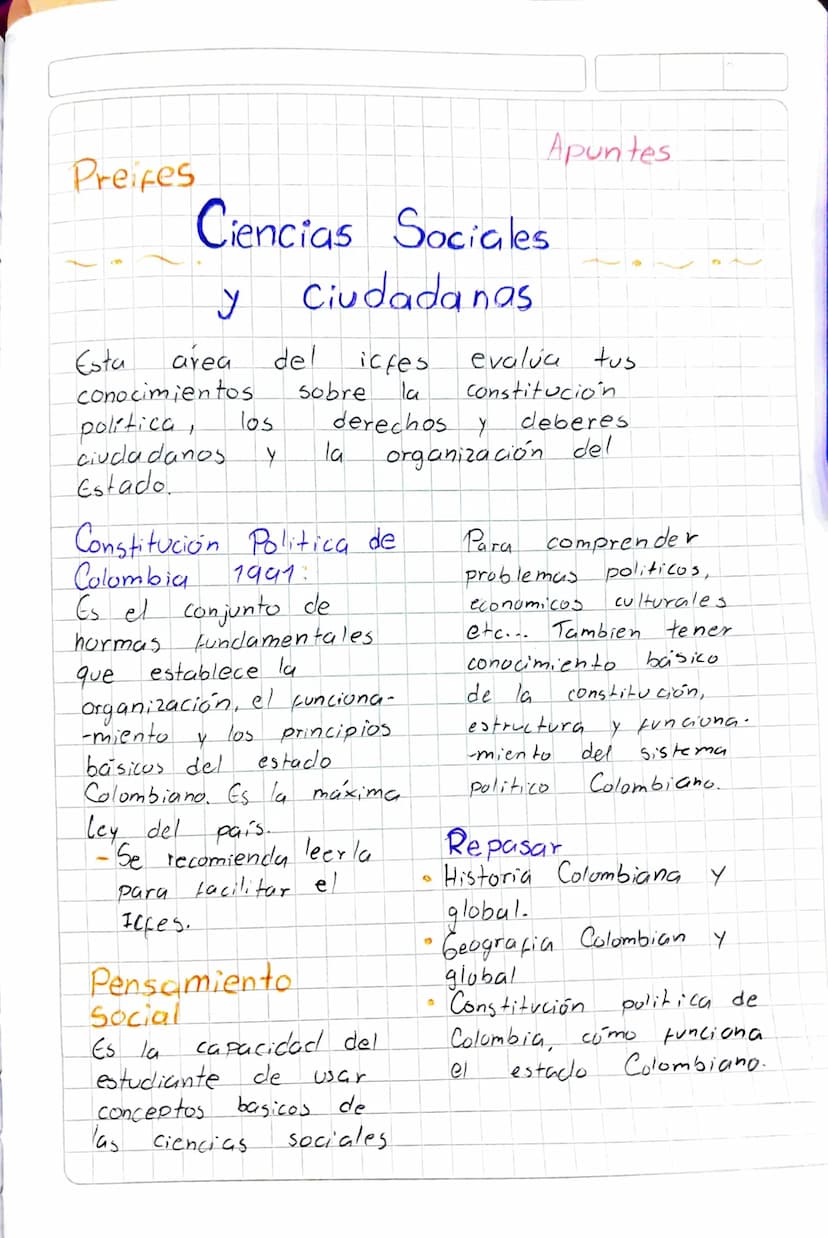 Apuntes
Preifes
Ciencias Sociales
y ciudadanas
Esta área del icfes evalúa tus
conocimientos sobre la constitución
política, los derechos y deberes
ciudadanos y la organización del
Estado.
Constitución Politica de
Colombia 1991:
Es el conjunto de
normas fundamentales
que establece la
organización, el funciona-
-miento y los principios
básicos del estado
Colombiano. Es la máxima
ley del país.
- Se recomienda leerla
para facilitar el
Icfes.
Pensamiento
Social
Es la capacidad del
estudiante de usar
conceptos basicos de
las ciencias sociales
Para comprender
problemas politicos,
economicos culturales
etc... Tambien tener
conocimiento básico
de la constitución,
estructura y funciona-
-miento del sistema
politico Colombiano.
Repasar
• Historia Colombiana y
global.
• Geografia Colombian y
global
• Constitución politica de
Colombia, cómo funciona
el estado Colombiano.